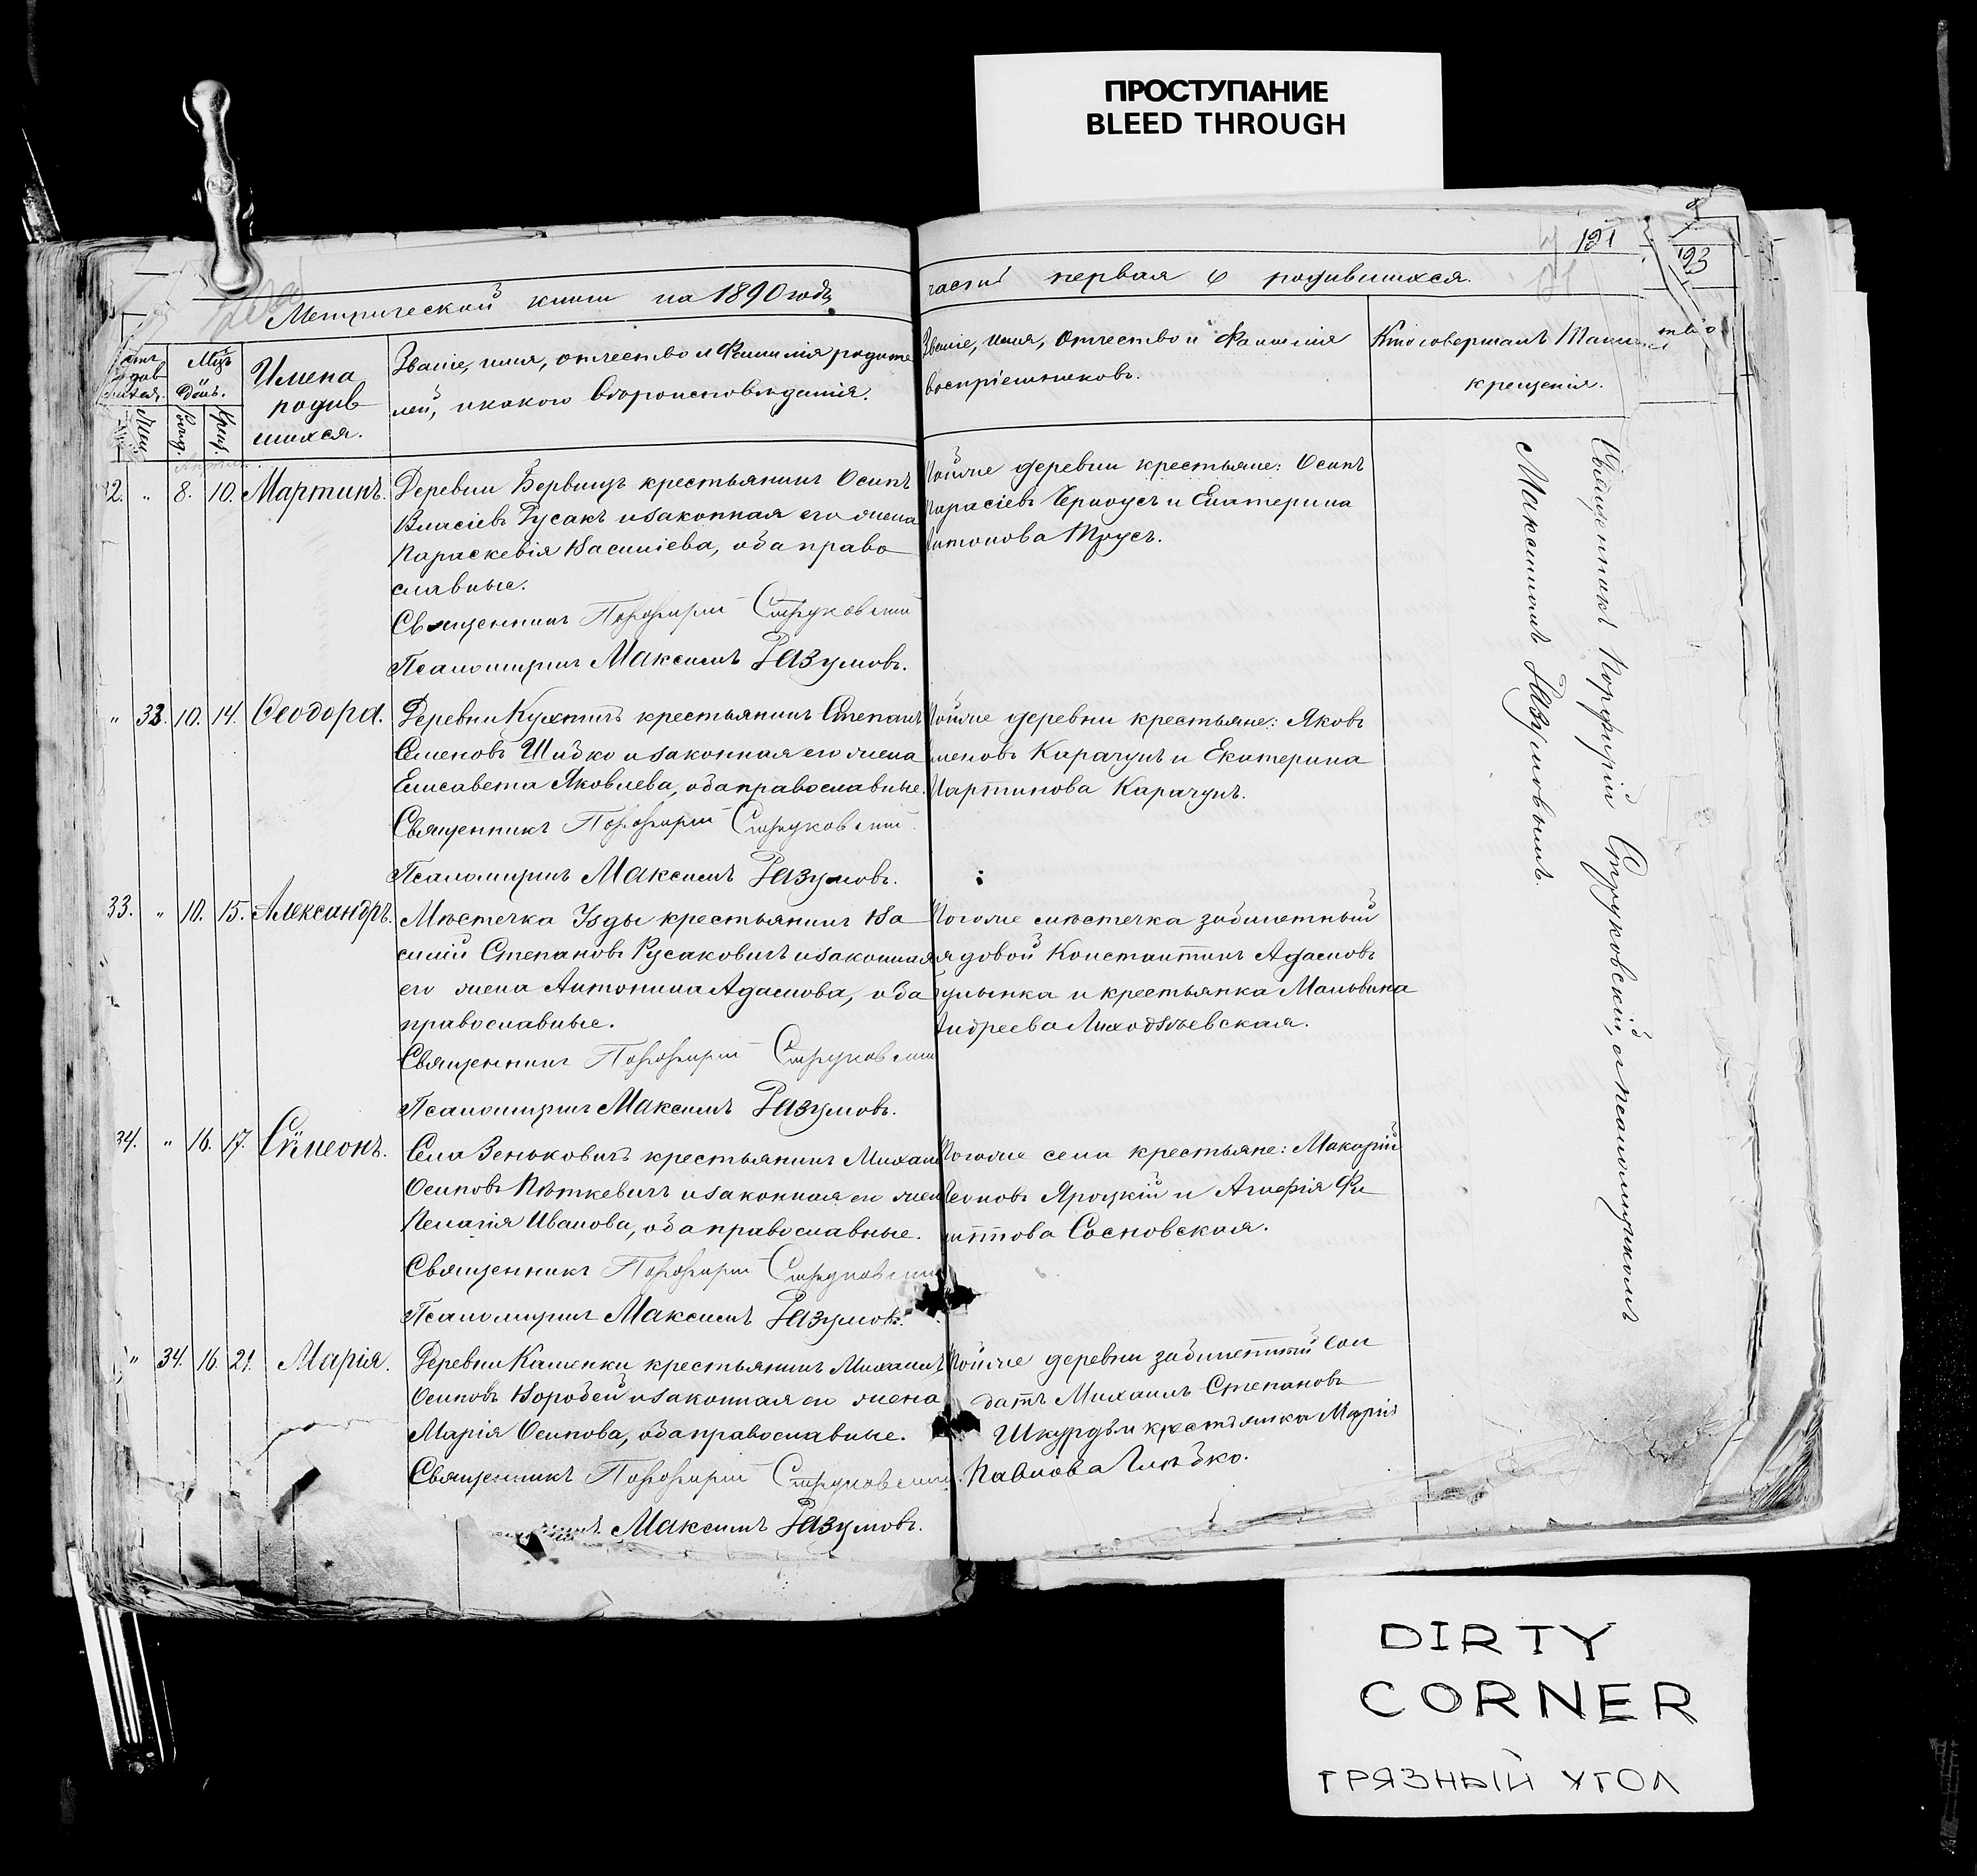 ПРОСТУПАНИЕ
BLEED THROUGH
121
193
Метрической книги на 1890 годъ
части первая о родившихся.
Мцъ
День.
Имена
родив
шихся.
Званіе, имя, отчество и Фамилія родите
лей, и какого вѣроисповѣданія.
Званіе, имя, отчество и Фамилія
воспріемниковъ.
Кто совершалъ Таин
крещенія.
" 8. 10. Мартинъ.
Деревни крестьянинъ Осипъ
Власіевъ Русакъ и законная его жена
Параскевія Василіева, оба право
славные.
Священникъ Порфирій Струковскій
Псаломщикъ Максимъ Разумовъ.
деревни крестьяне: Осипъ
Черноусъ и Екатерина
Антонова Трусъ.
" 33. 10. 14. Ѳеодора.
Деревни Кухтичъ крестьянинъ Степанъ
Семеновъ Шибко и законная его жена
Елисавета Яковлева, оба православные.
Священникъ Порфирій Струковскій
Псаломщикъ Максимъ Разумовъ.
Тойже деревни крестьяне: Яковъ
Карачунъ и Екатерина
Мартинова Карачунъ.
33. " 10. 15. Александръ.
Мѣстечка Узды крестьянинъ Ва
силій Степановъ Русаковичъ и законная
его жена Антонина Адамова, оба
православные.
Священникъ Порфирій Струковскій
Псаломщикъ Максимъ Разумовъ.
Тогоже мѣстечка забилетный
рядовой Константинъ Адамовъ
и крестьянка Мальвина
Андреева Лиходзѣевская.
34. " 16. 17. Сѵмеонъ.
Села Зеньковичъ крестьянинъ Михаилъ
Осиповъ Пѣткевичъ и законная его жена
Пелагія Иванова, оба православные.
Священникъ Порфирій Струковскій
Псаломщикъ Максимъ Разумовъ.
Тогоже села крестьяне: Макарій
Яроцкій и Агафія Фи
липпова Сосновская.
" 34. 16. 21. Марія.
Деревни Каменки крестьянинъ Михаилъ
Осиповъ Воробей и законная его жена
Марія Осипова, оба православные.
Священникъ Порфирій Струковскій.
Максимъ Разумовъ.
Тойже деревни забилетный сол
датъ Михаилъ Степановъ
Шкурдь и крестьянка Марія
Павлова Глѣбко.
Священникъ Порфирій Струковскій, съ псаломщикомъ
Максимомъ Разумовымъ.
DIRTY
CORNER
ГРЯЗНЫЙ УГОЛ